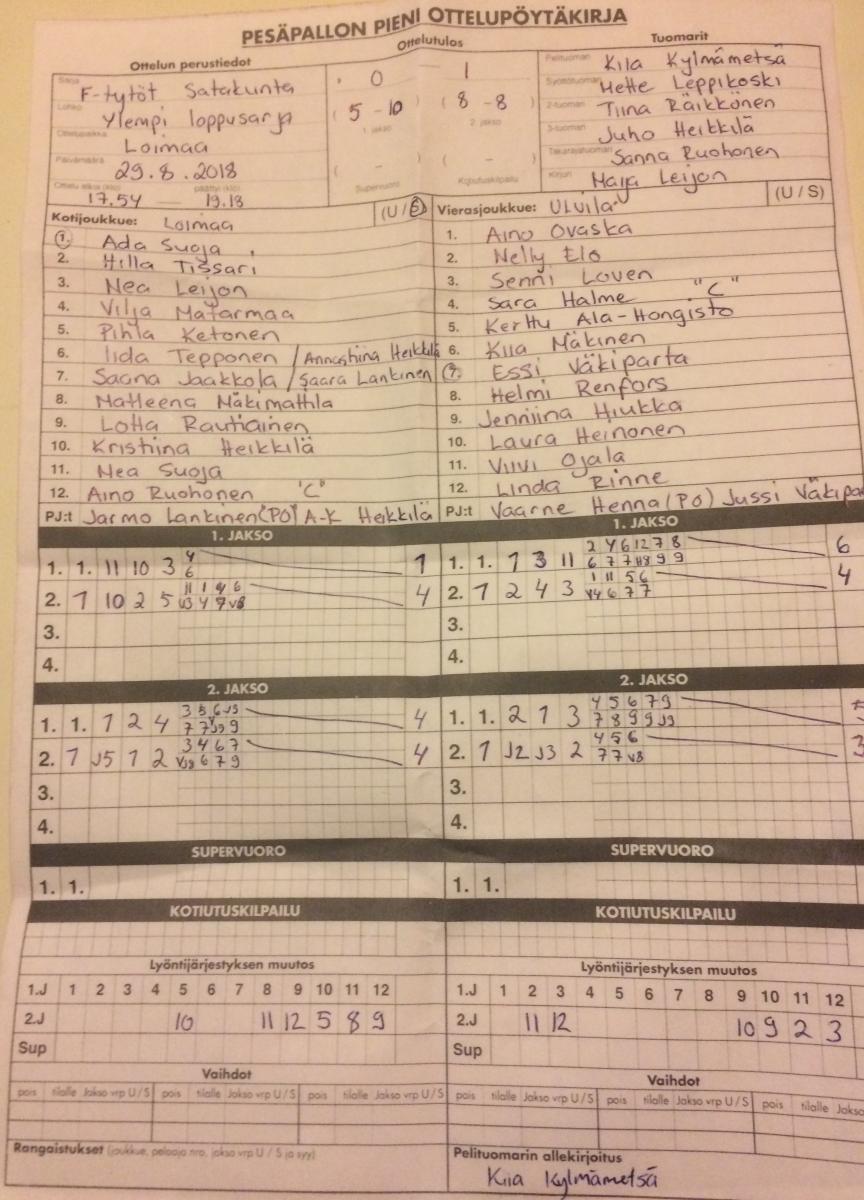 PESÄPALLON PIENI OTTELUPÖYTÄKIRJA
Ottelun perustiedot
Ottelutulos
Tuomarit
Sarja F-tytöt Satakunta
Lohko Ylempi loppusarja
Ottelupaikka Loimaa
Päivämäärä 29.8.2018
Ottelu alkoi (klo) 17.54 päättyi (klo) 19.18
0 1
(5 - 10) (8 - 8)
1. jakso 2. jakso
( - ) ( - )
Supervuoro Kotiutuskilpailu
Pelituomari Kiia Kylmämetsä
Syöttötuomari Mette Leppikoski
2-tuomari Tiina Räikkönen
3-tuomari Juho Heikkilä
Takarajatuomari Sanna Ruohonen
Kirjuri Maija Leijon
Kotijoukkue: Loimaa (U/S)
1. Ada Suoja
2. Hilla Tissari
3. Nea Leijon
4. Vilja Matarmaa
5. Pihla Ketonen
6. Iida Tepponen / Annastiina Heikkilä
7. Saana Jaakkola / Saara Lankinen
8. Matleena Mäkimattila
9. Lotta Rautiainen
10. Kristiina Heikkilä
11. Nea Suoja
12. Aino Ruohonen "C"
PJ:t Jarmo Lankinen (PO) A-K Heikkilä
Vierasjoukkue: Ulvila (U/S)
1. Aino Ovaska
2. Nelly Elo
3. Senni Loven
4. Sara Halme "C"
5. Kerttu Ala-Hongisto
6. Kiia Mäkinen
7. Essi Väkiparta
8. Helmi Renfors
9. Jenniina Hiukka
10. Laura Heinonen
11. Viivi Ojala
12. Linda Rinne
PJ:t Vaarne Henna (PO) Jussi Väkipa
1. JAKSO
1. 1. 11 10 3 4 6 1
2. 7 10 2 5 11 1 4 6 V3 4 7 V8 4
3.
4.
1. JAKSO
1. 1. 1 3 11 2 4 6 12 7 8 6 7 7 9 9 6
2. 7 2 4 3 1 11 5 6 V4 6 7 7 4
3.
4.
2. JAKSO
1. 1. 1 2 4 3 5 6 J5 7 7 9 4
2. 7 J5 1 2 3 4 6 7 6 7 9 4
3.
4.
2. JAKSO
1. 1. 2 1 3 4 5 6 7 9 7 8 9 9 J9 5
2. 7 J2 J3 2 4 5 6 7 7 V8 3
3.
4.
SUPERVUORO
1. 1.
SUPERVUORO
1. 1.
KOTIUTUSKILPAILU
KOTIUTUSKILPAILU
Lyöntijärjestyksen muutos
1.J 1 2 3 4 5 6 7 8 9 10 11 12
2.J 10 11 12 5 8 9
Sup
Lyöntijärjestyksen muutos
1.J 1 2 3 4 5 6 7 8 9 10 11 12
2.J 11 12 10 9 2 3
Sup
Vaihdot
pois tilalle Jakso vrp U/S pois tilalle Jakso vrp U/S pois tilalle Jakso vrp U/S
Vaihdot
pois tilalle Jakso vrp U/S pois tilalle Jakso vrp U/S pois tilalle Jakso
Rangaistukset (joukkue, pelaaja nro, jakso vrp U / S ja syy)
Pelituomarin allekirjoitus
Kiia Kylmämetsä